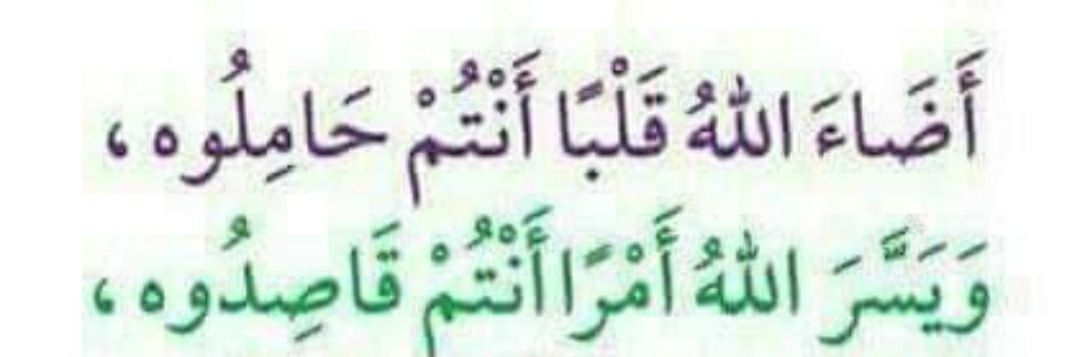 أَضَاءَ اللهُ قَلْبًا أَنْتُمْ حَامِلُوه ،
وَيَسَّرَ اللهُ أَمْرًا أَنْتُمْ قَاصِدُوه ،